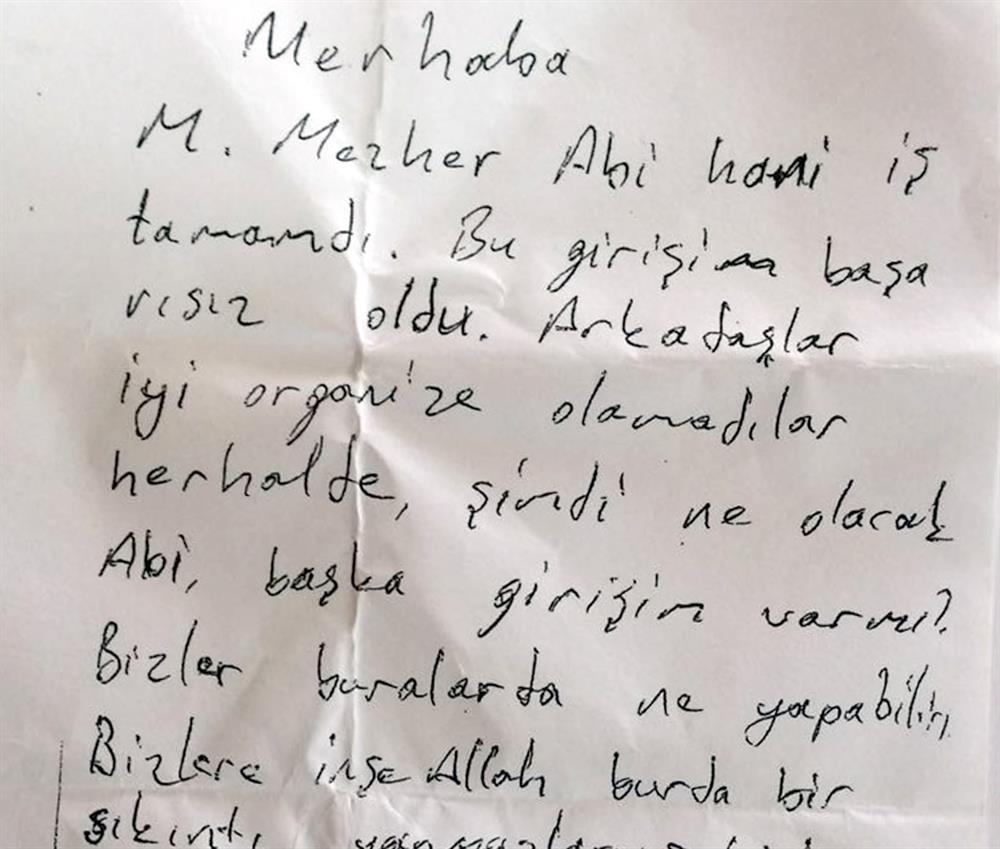 Merhaba
M. Mezher Abi hani iş
tamamdı. Bu girişim başa
rısız oldu. Arkadaşlar
iyi organize olamadılar
herhalde, şimdi ne olacak
Abi, başka girişim varmı?
Bizler buralarda ne yapabiliriz
Bizlere inşeAllah burda bir
sıkıntı